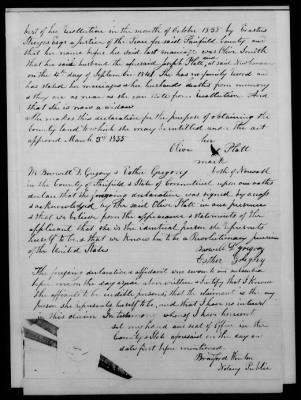 best of her recollections in the month of October 1838 by Erastus
Sturges Esqr a justice of the Peace for said Fairfield County and
that her name before her said last marriage was Olive Smith
that her said husband the aforesaid Joseph Platt, at said
on the 4th day of September 1841 She has no family record and
has stated her marriages & her husbands deaths from memory
& they are as near as she can state from recollection. And
that she is now a widow
She makes this declaration for the purpose of obtaining the
bounty land to which she may be entitled under the act
approved March 3rd 1855
her
Olive Platt
mark
We Burwell D. Gregory & Esther Gregory both of Norwalk
in the county of Fairfield & State of Connecticut upon our oaths
declare that the foregoing declaration was signed by mark
& acknowledged by the said Olive Platt in our presence
& that we believe from the appearance & statements of the
applicant that she is the identical person she represents
herself to be & that we know her to be a Revolutionary pensioner
of the United States
Burwell D. Gregory
Esther Gregory
The foregoing declaration & affidavit were sworn to and subscribed
before me on the day & year above written & certify that I know
the affiants to be credible persons, that the claimant is the
person she represents herself to be, and that I have no interest
in this claim. In testimony whereof I have hereunto
set my hand and seal of Office in the
County & State aforesaid on the day and
date first before mentioned
Notary Public